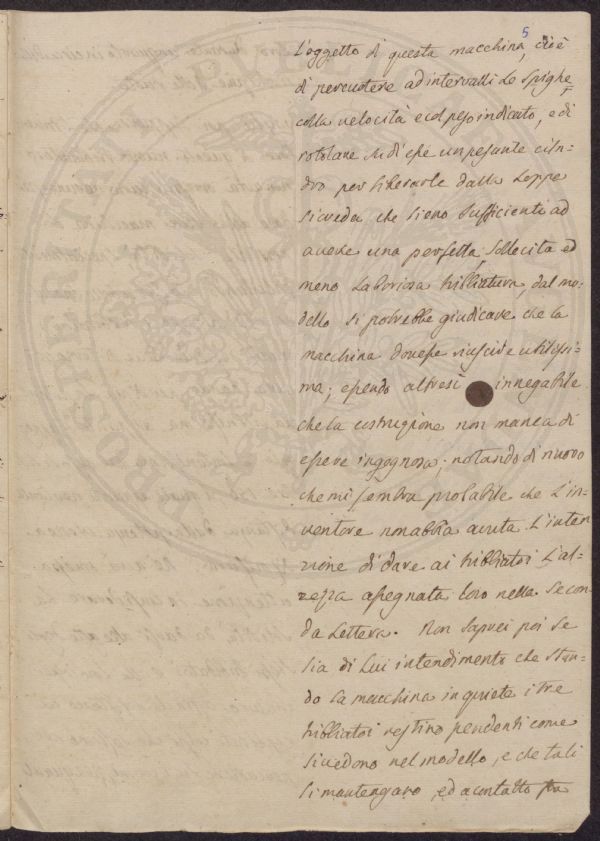 5
L'oggetto di questa macchina, cioè
di percuotere ad intervalli le Spighe,
colla velocità e col peso indicato, e di
rotolare su di esse un pesante cilin=
dro per liberarle dalla Loppa
si creda che sieno sufficienti ad
avere una perfetta sollecita ed
meno laboriosa tribbiatura, dal mo=
dello si potrebbe giudicare che la
macchina dovesse riuscire utilissi=
ma; essendo altresì innegabile
che la costruzione non manca di
essere ingegnosa; notando di nuovo
che mi sembra probabile che L'in=
ventore non abbia avuta L'inten
zione di dare ai tribbiatoi L'al=
tezza assegnata loro nella Secon
da Lettera. Non saprei poi se
sia di Lui intendimento che stan=
do la macchina in quiete i tre
tribbiatoi restino pendenti come
si vedono nel modello, e che tali
si mantengano, ed a contatto
PROSPERITATI PUBLICAE